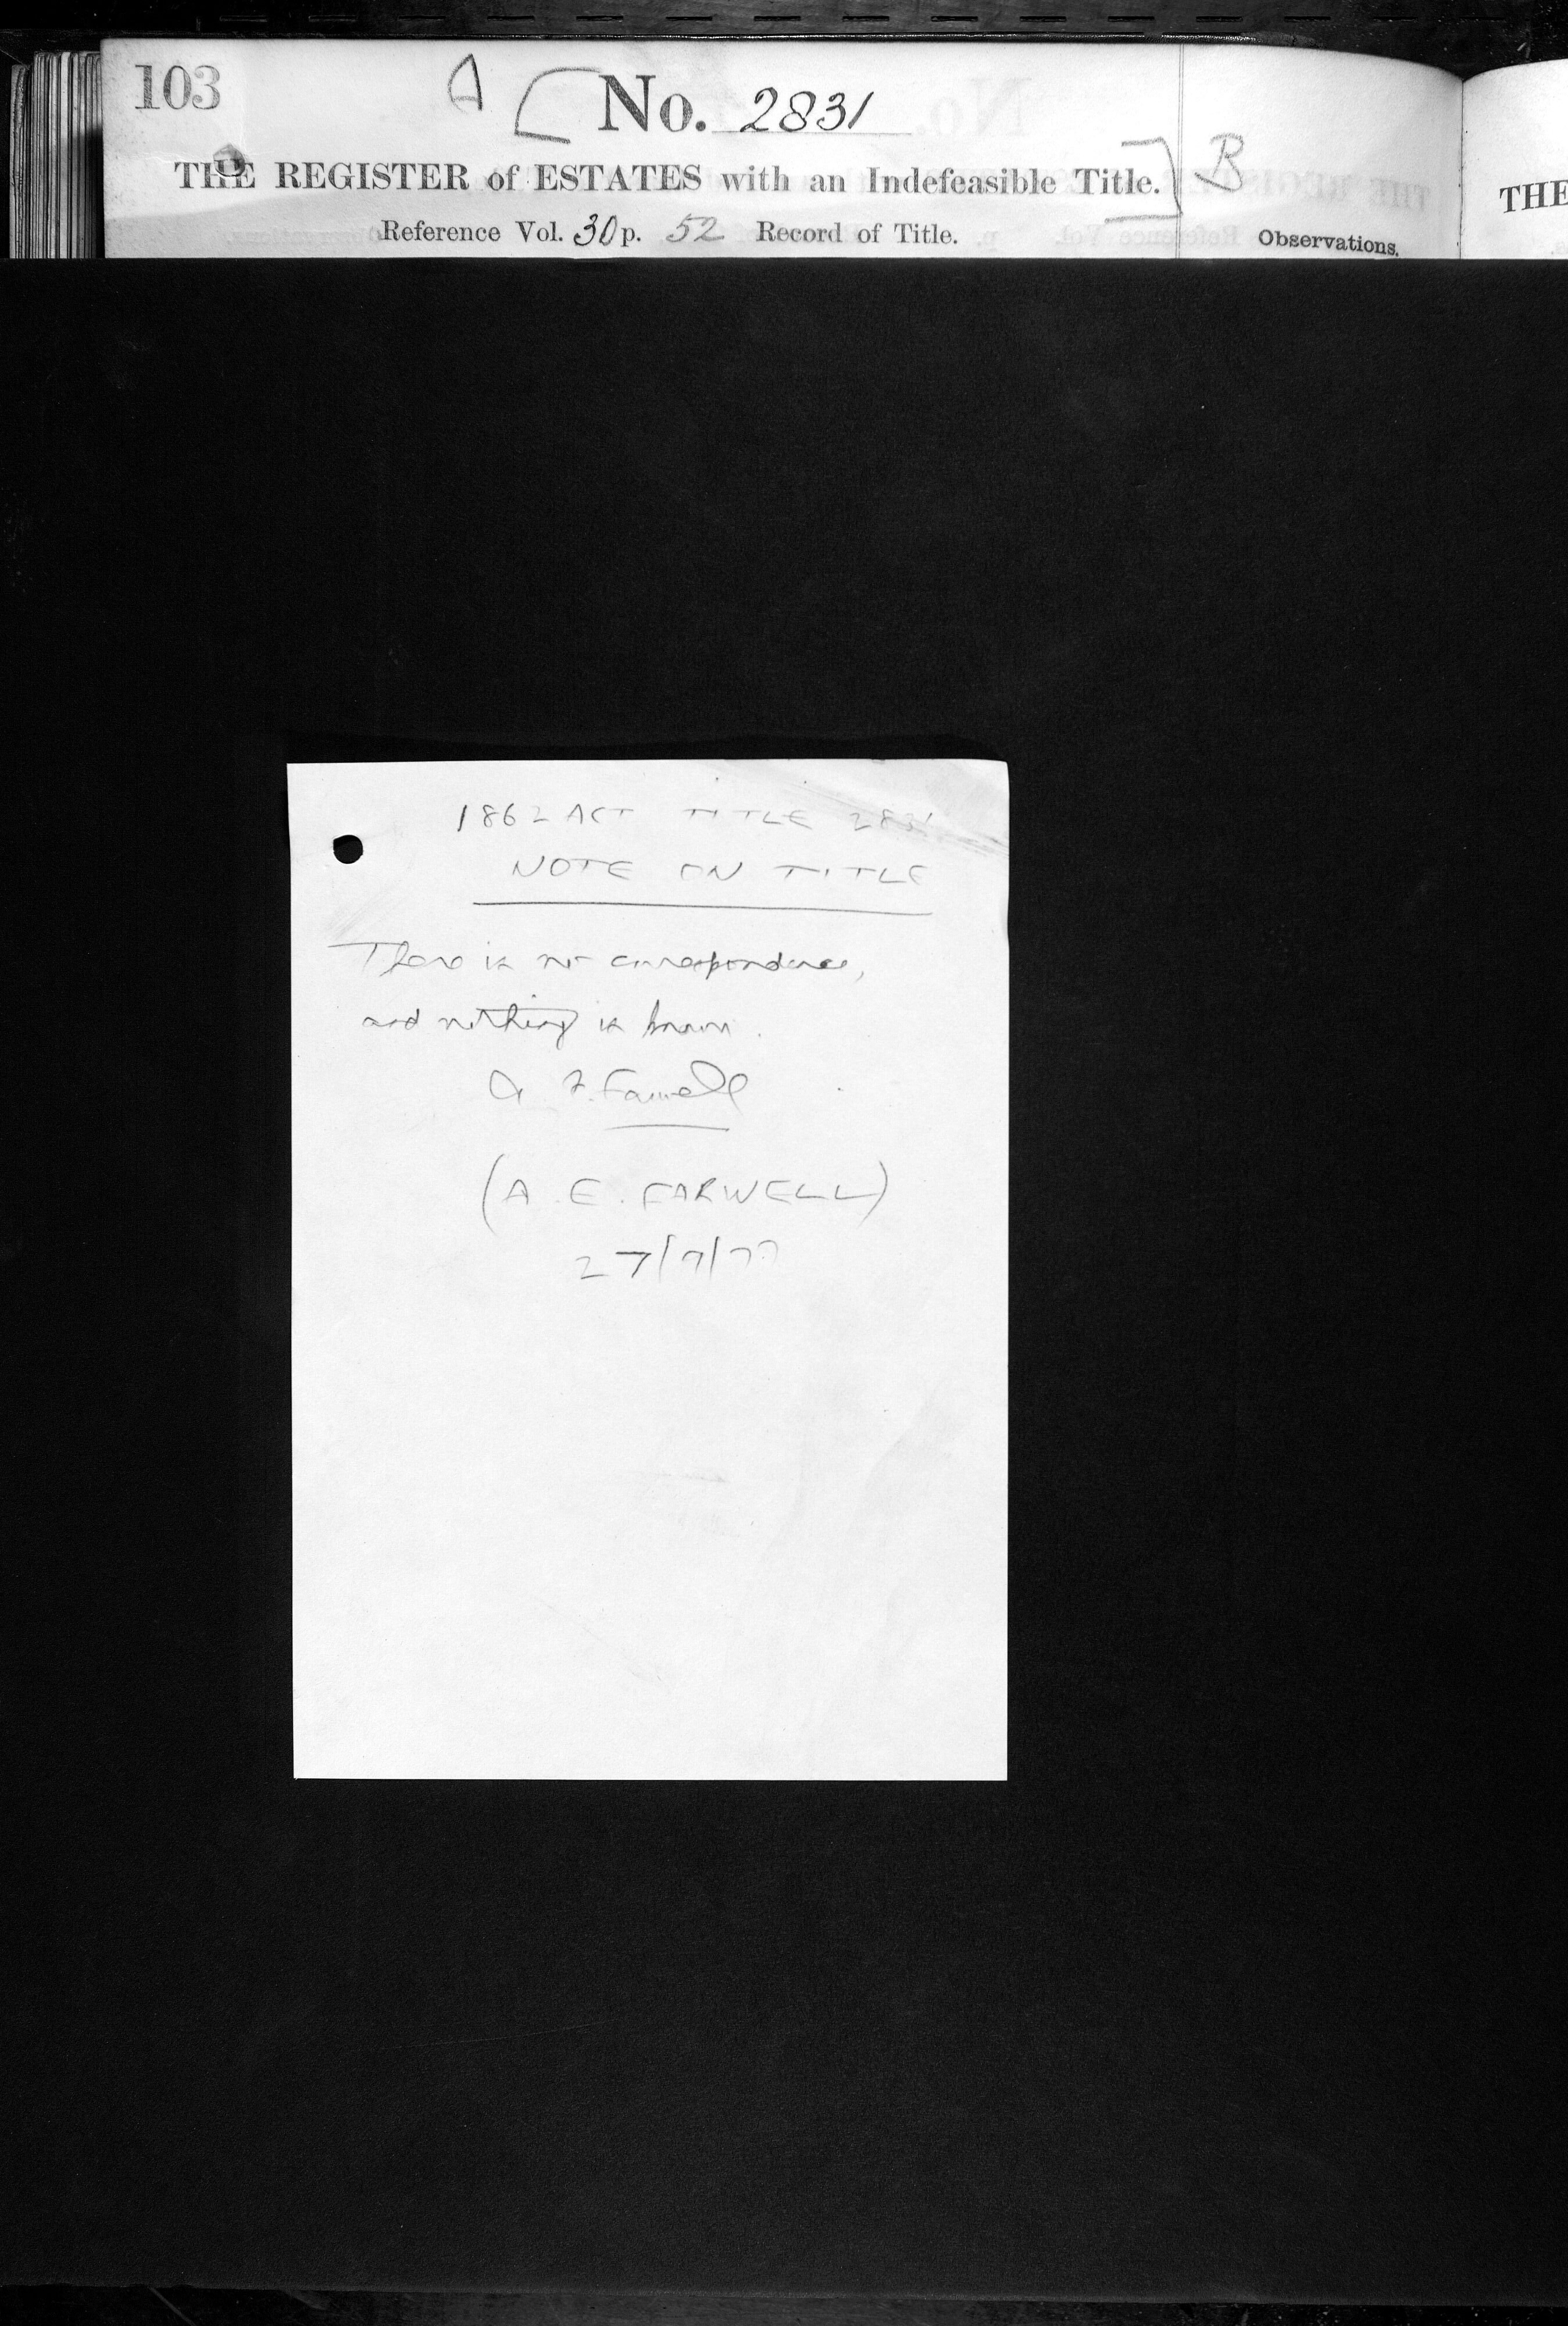 103 A [ No. 2831
THE REGISTER of ESTATES with an Indefeasible Title. ] B
THE
Reference Vol. 30 p. 52 Record of Title.
Observations.
1862 ACT TITLE 2831
NOTE ON TITLE
There is no correspondence,
and nothing is known.
A E. Farwell
(A. E. FARWELL)
27/7/77